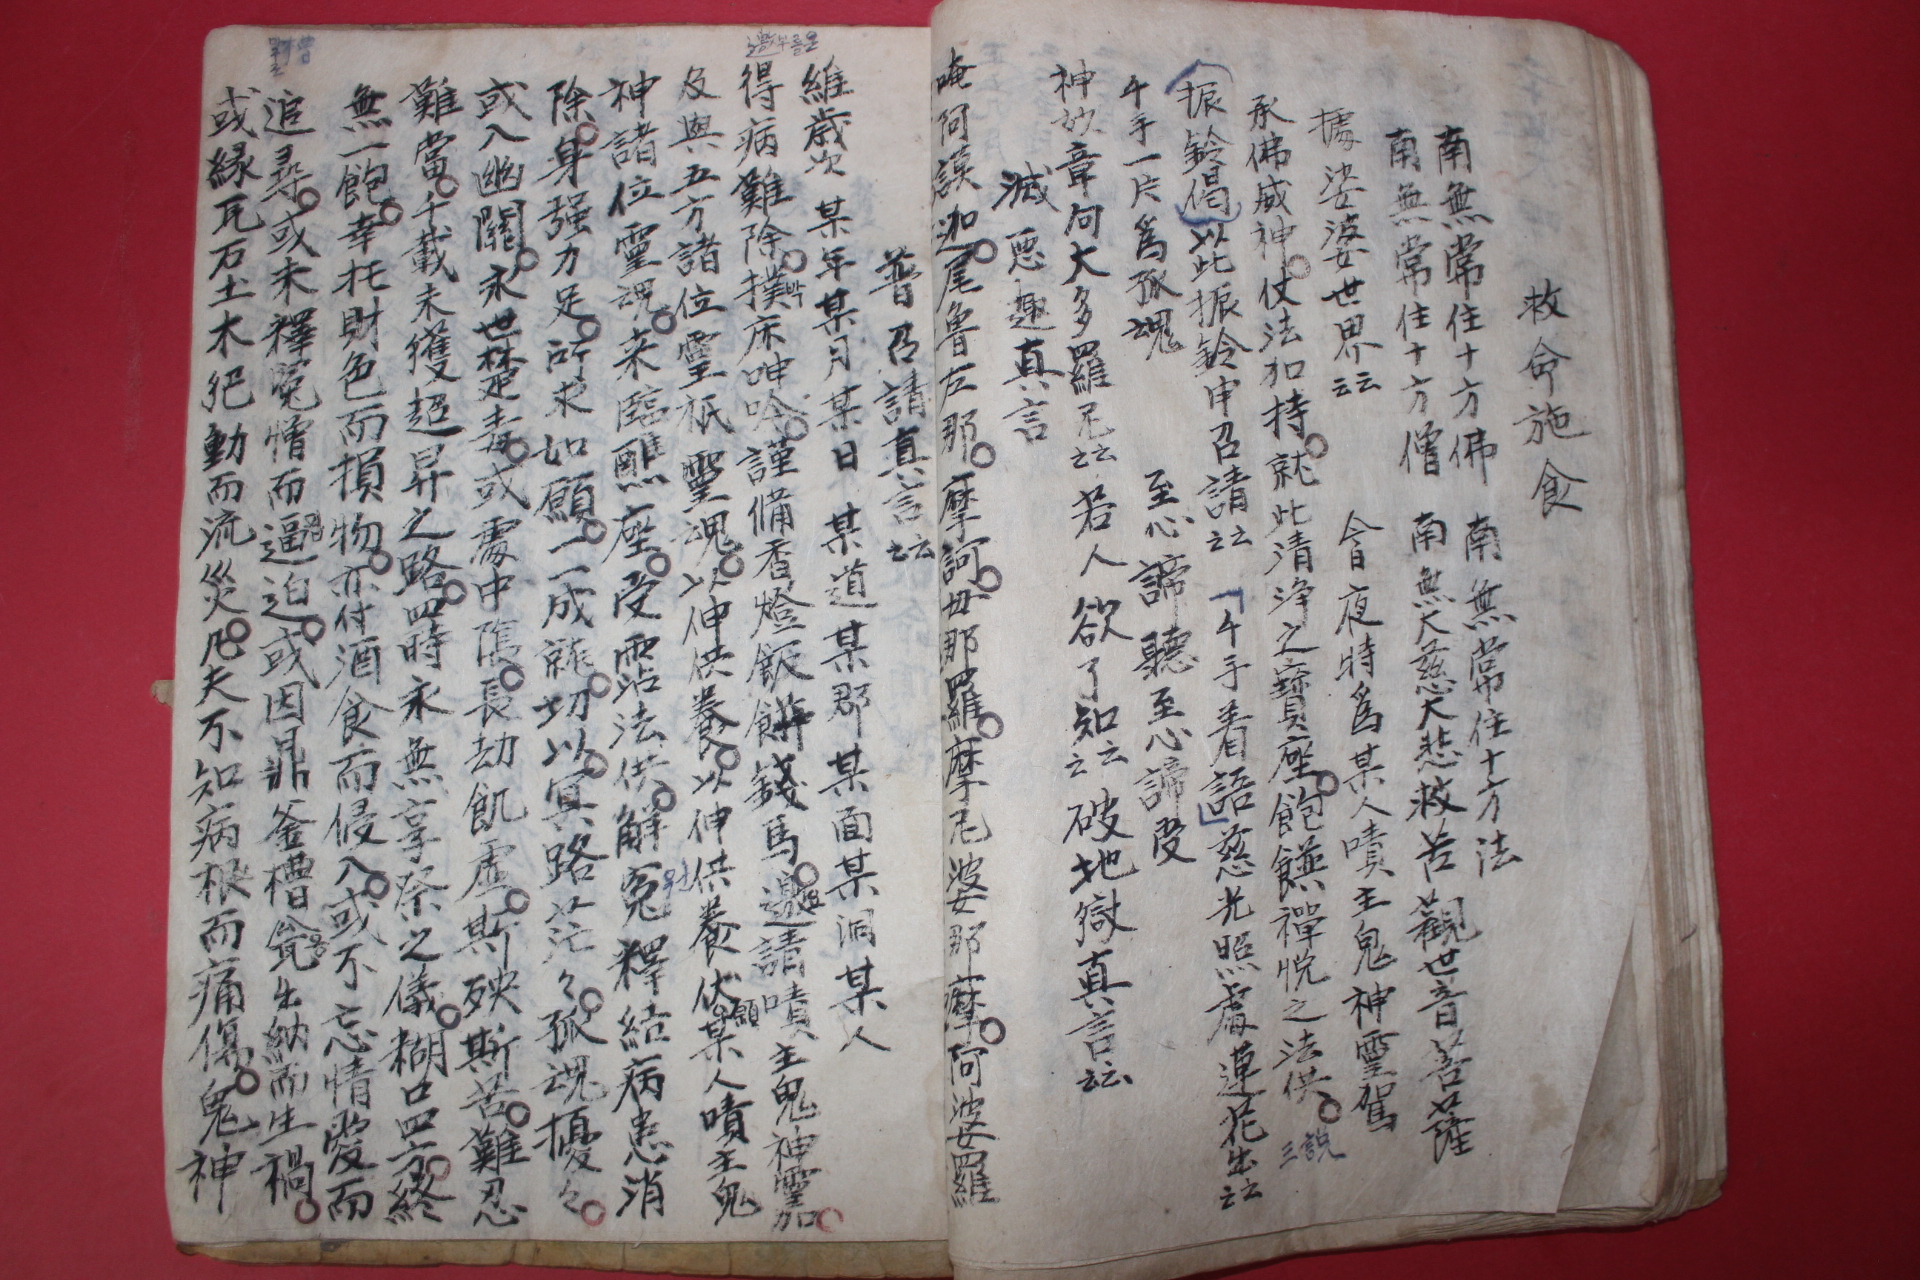 救命施食
南無常住十方佛 南無常住十方法
南無常住十方僧 南無大慈大悲救苦觀世音菩薩
據娑婆世界云云 今日夜時爲某人嘖主鬼神靈駕
承佛威神仗法加持就此清淨之寶座飽饍禪悅之法供 三說
振鈴偈 以此振鈴申召請云云 「千手着語」慈光照處蓮花出云云
千手一片爲孤魂 至心諦聽至心諦受
神妙章句大多羅尼云云 若人欲了知云云 破地獄真言云云
滅惡趣真言
唵阿謨迦尾魯左那摩訶母那羅摩尼婆那摩阿婆羅
普召請真言云云
維歲次 某年某月某日 某道某郡某面某洞某人
得病難除撲박床呻吟謹備香燈飯餠錢馬邀請嘖主鬼神靈加
及與五方諸位靈祇靈魂以伸供養以伸供養伏願某人嘖主鬼
神諸位靈魂来臨醮座受霑法供解冤釋結病患消
除身强力足所求如願一一成就切以冥路茫々孤魂擾々
或入幽關永世楚毒或處中陰長劫飢虛斯殃斯苦難忍
難當千載未獲超昇之路四時永無享祭之儀糊口四方終
無一飽幸托財色而損物亦付酒食而侵入或不忘情愛而
追尋或未釋冤憎而逼迫或因鼎釜槽瓮出納而生禍
或緣瓦石土木犯動而流災凡夫不知病根而痛傷鬼神